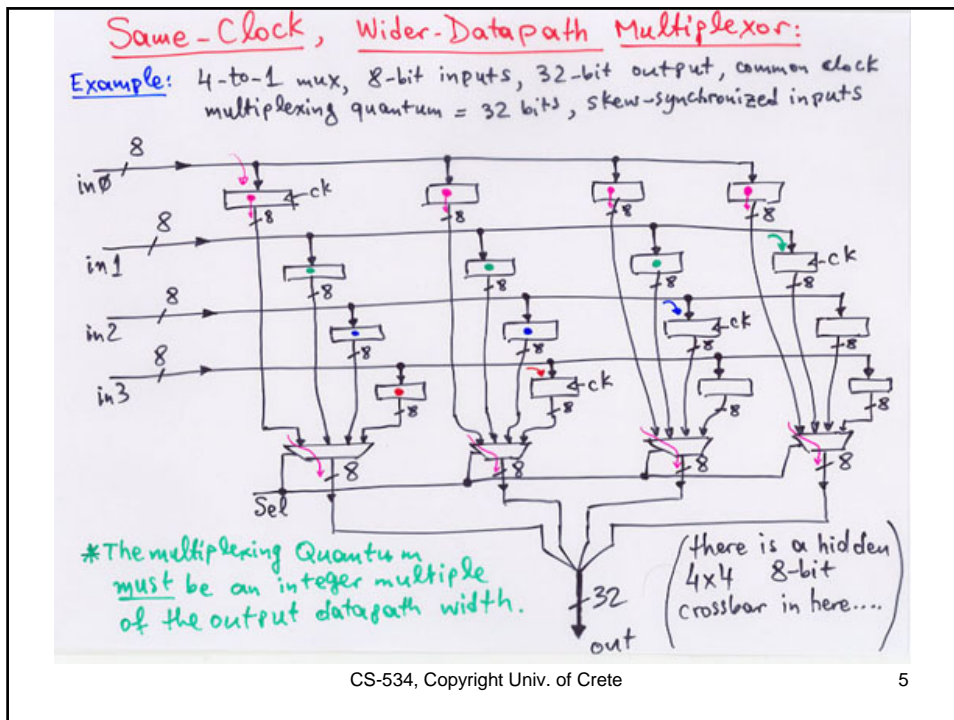 Same-Clock, Wider-Datapath Multiplexor:
Example: 4-to-1 mux, 8-bit inputs, 32-bit output, common clock
multiplexing quantum = 32 bits, skew-synchronized inputs
8
inø
ck
8
8
8
8
8
in1
ck
8
8
8
8
8
in2
ck
8
8
8
8
8
in3
ck
8
8
8
8
8
8
8
8
Sel
*The multiplexing Quantum
must be an integer multiple
of the output datapath width.
(there is a hidden
4x4 8-bit
crossbar in here....)
32
out
CS-534, Copyright Univ. of Crete
5